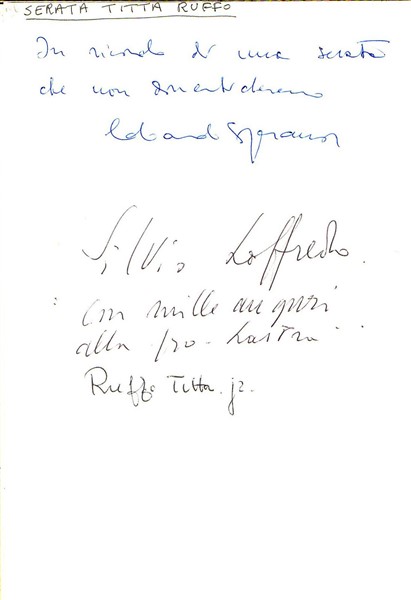 SERATA TITTA RUFFO
In ricordo di una serata
che non dimenticheremo
Silvio Loffredo
con mille auguri
alla pro-Lastra
Ruffo Titta jr.